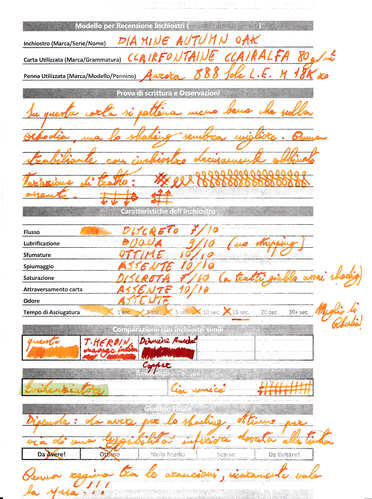 Modello per Recensione Inchiostri
Inchiostro (Marca/Serie/Nome) DIAMINE AUTUMN OAK
Carta Utilizzata (Marca/Grammatura) CLAIREFONTAINE CLAIRALFA 80 g/m²
Penna Utilizzata (Marca/Modello/Pennino) Aurora 888 Sole L.E. M 18K
Prova di scrittura e Osservazioni
Su questa carta si pattina meno bene che sulla
Rhodia, ma lo shading sembra migliore. Penna
strabiliante con inchiostro decisamente abbinato
Variazione di tratto:
assente
Caratteristiche dell'Inchiostro
Flusso DISCRETO 7/10
Lubrificazione BUONA 9/10 (no skipping)
Sfumature OTTIME 10/10
Spiumaggio ASSENTE 10/10
Saturazione DISCRETA 7/10 (a tratti giallo assai shading)
Attraversamento carta ASSENTE 10/10
Odore ASSENTE
Tempo di Asciugatura 1 sec. 5 sec. 10 sec. 15 sec. 20 sec. 30+ sec. Meglio di Rhodia!
Comparazione con inchiostri simili
questo T. HERBIN orange indien Diamine Ancient Copper
Evidenziatore
Giudizio Finale
Dipende: da avere per lo shading, ottimo per
via di una leggibilità inferiore dovuta alla tinta
Da Avere! Ottimo Nella Media Scarso Da Evitare!
Penna regina tra le arancioni, sicuramente vale
la spesa!!!